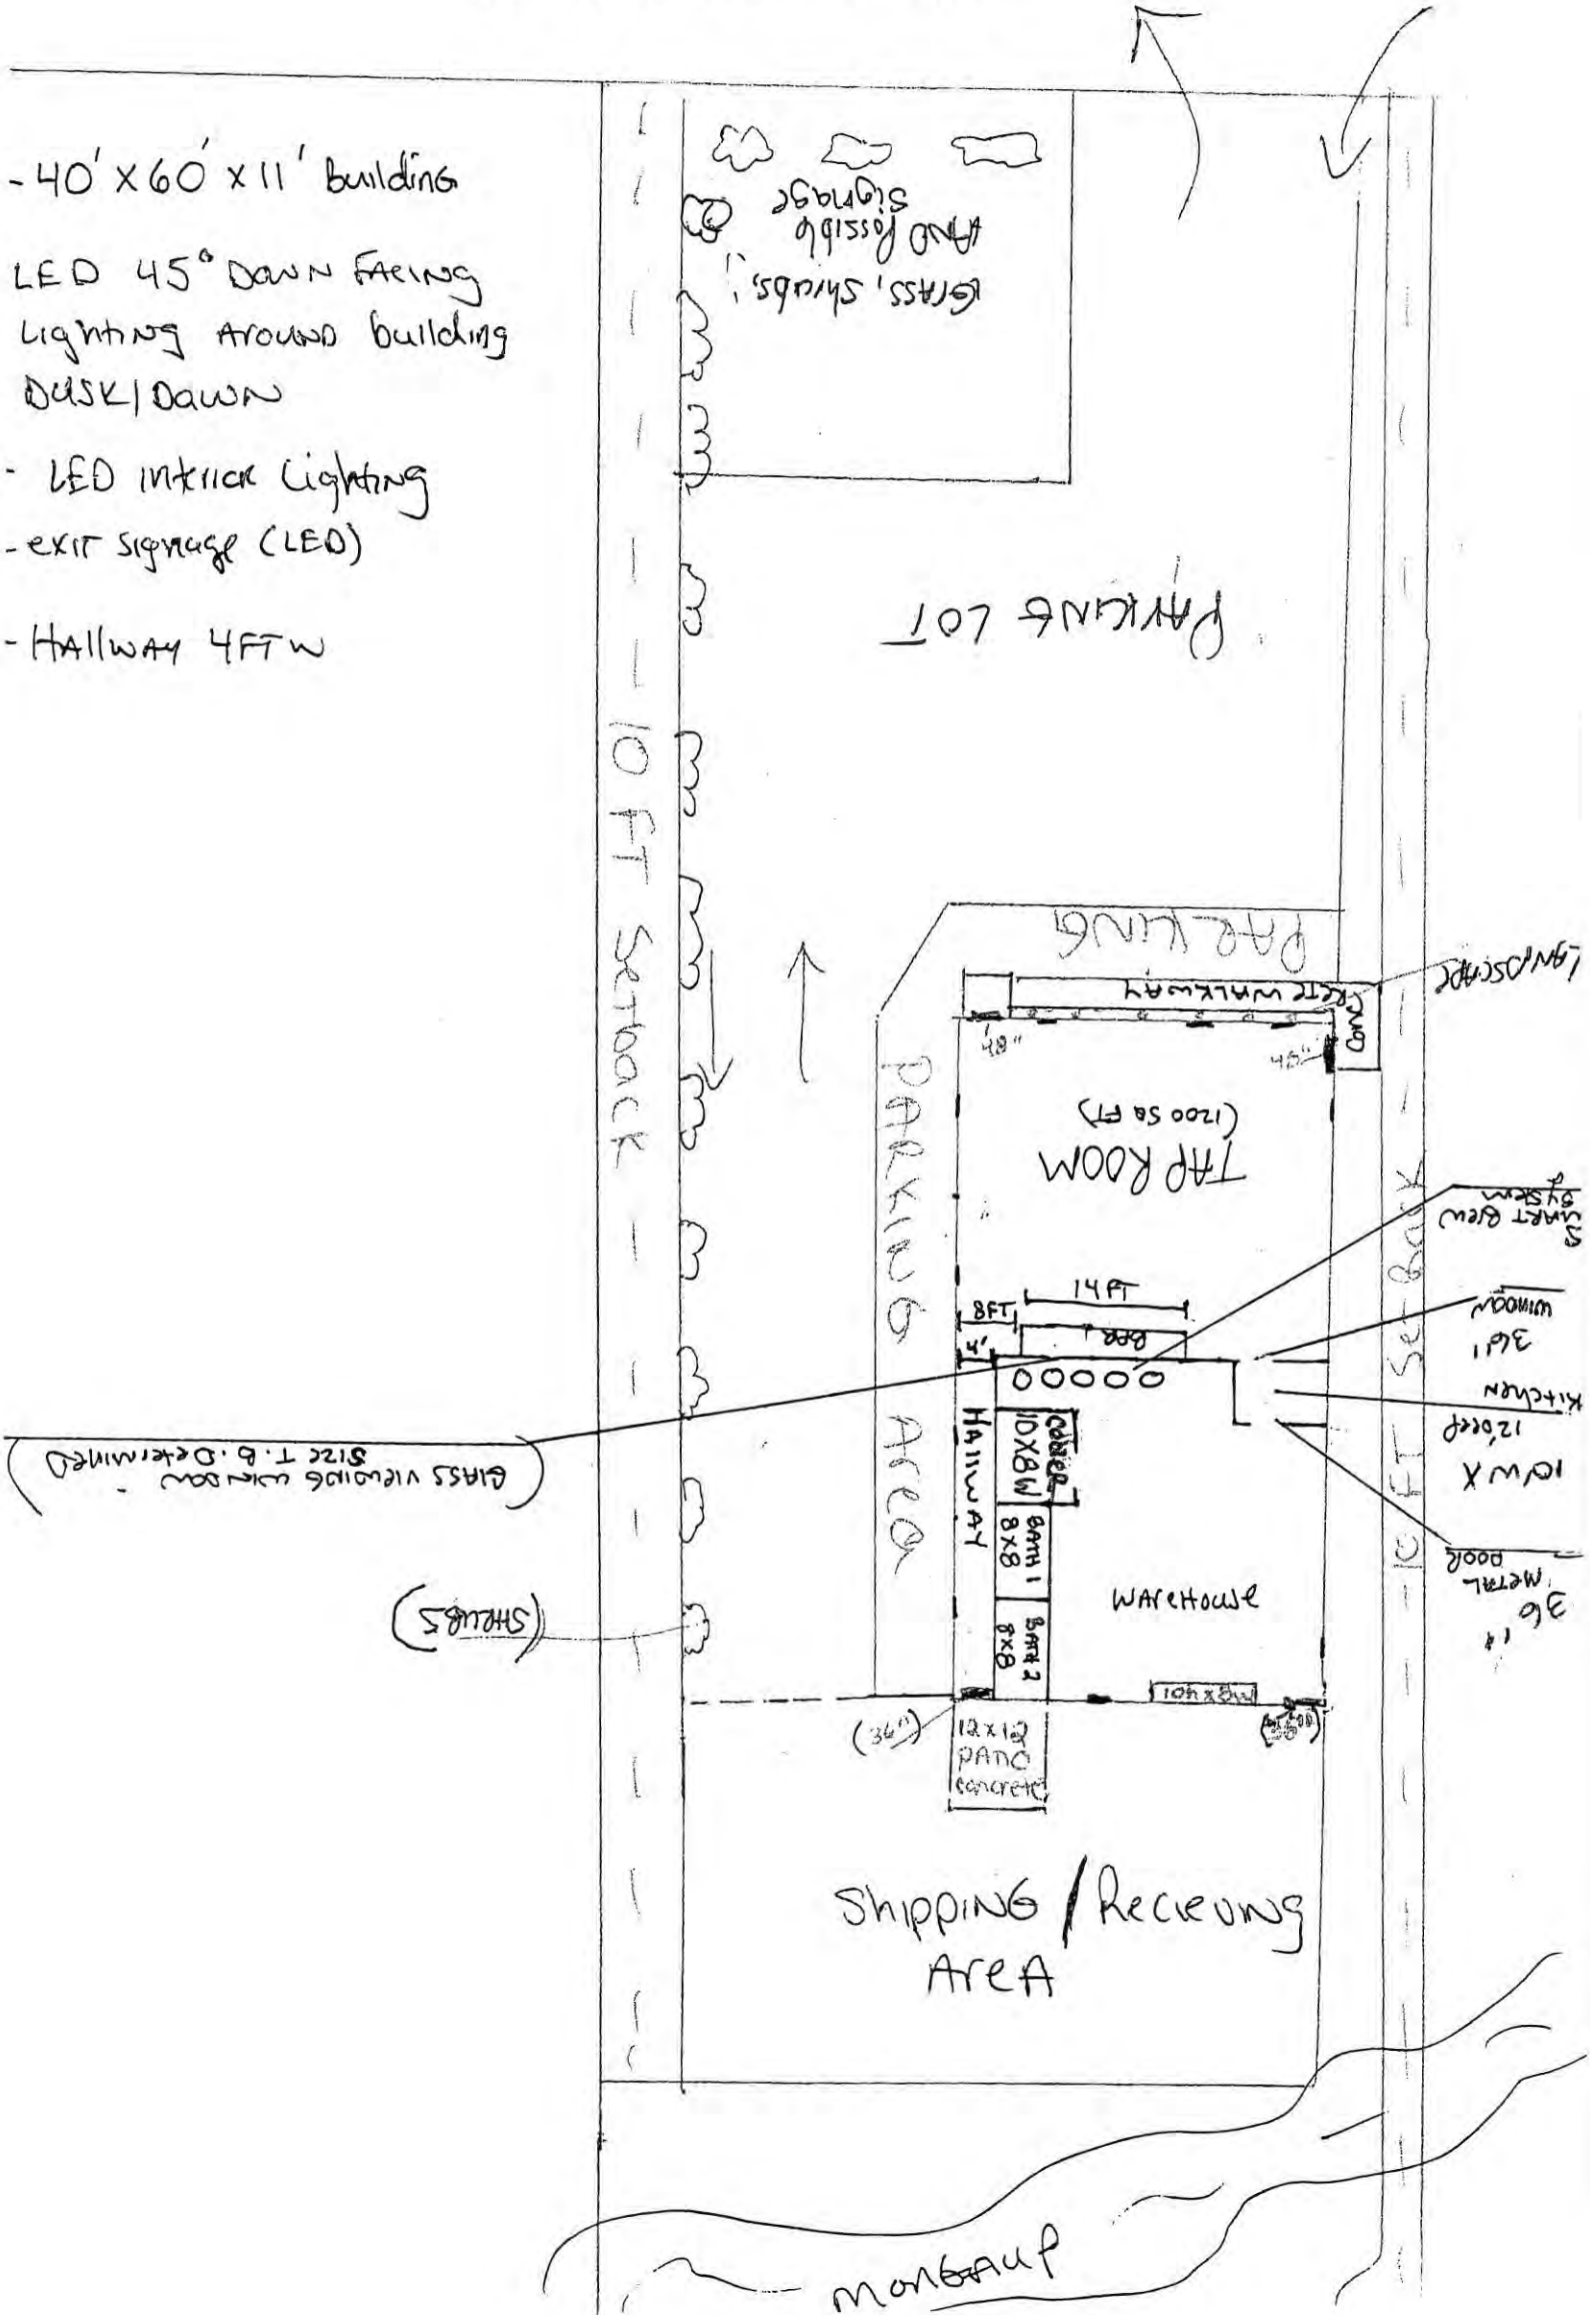 - 40' X 60' X 11' Building
LED 45° DOWN FACING
Lighting Around building
DUSK/DAWN
- LED interior Lighting
- exit signage (LED)
- HAllWAY 4FT W
GRASS, Shrubs,
AND Possible
Signage
PARKING LOT
10 FT Setback
PARKING
LANDSCAPE
CONC
RETE WALKWAY
48"
48"
PARKING Area
TAP ROOM
(1200 SQ FT)
10 FT Set Back
SMART BREW
SYSTEM
14 FT
8FT
BAR
4'
36"
WINDOW
10'W X
12'DEEP
Kitchen
36"
METAL
DOOR
HAllWAY
COOLER
10X8W
BATH 1
8X8
BATH 2
8X8
WAREHOUSE
(GLASS VIEWING WINDOW -
SIZE T.B. Determined)
(SHRUBS)
10h x 8w
(36")
12x12
PATIO
concrete
Shipping / Recieving
Area
MONGAUP